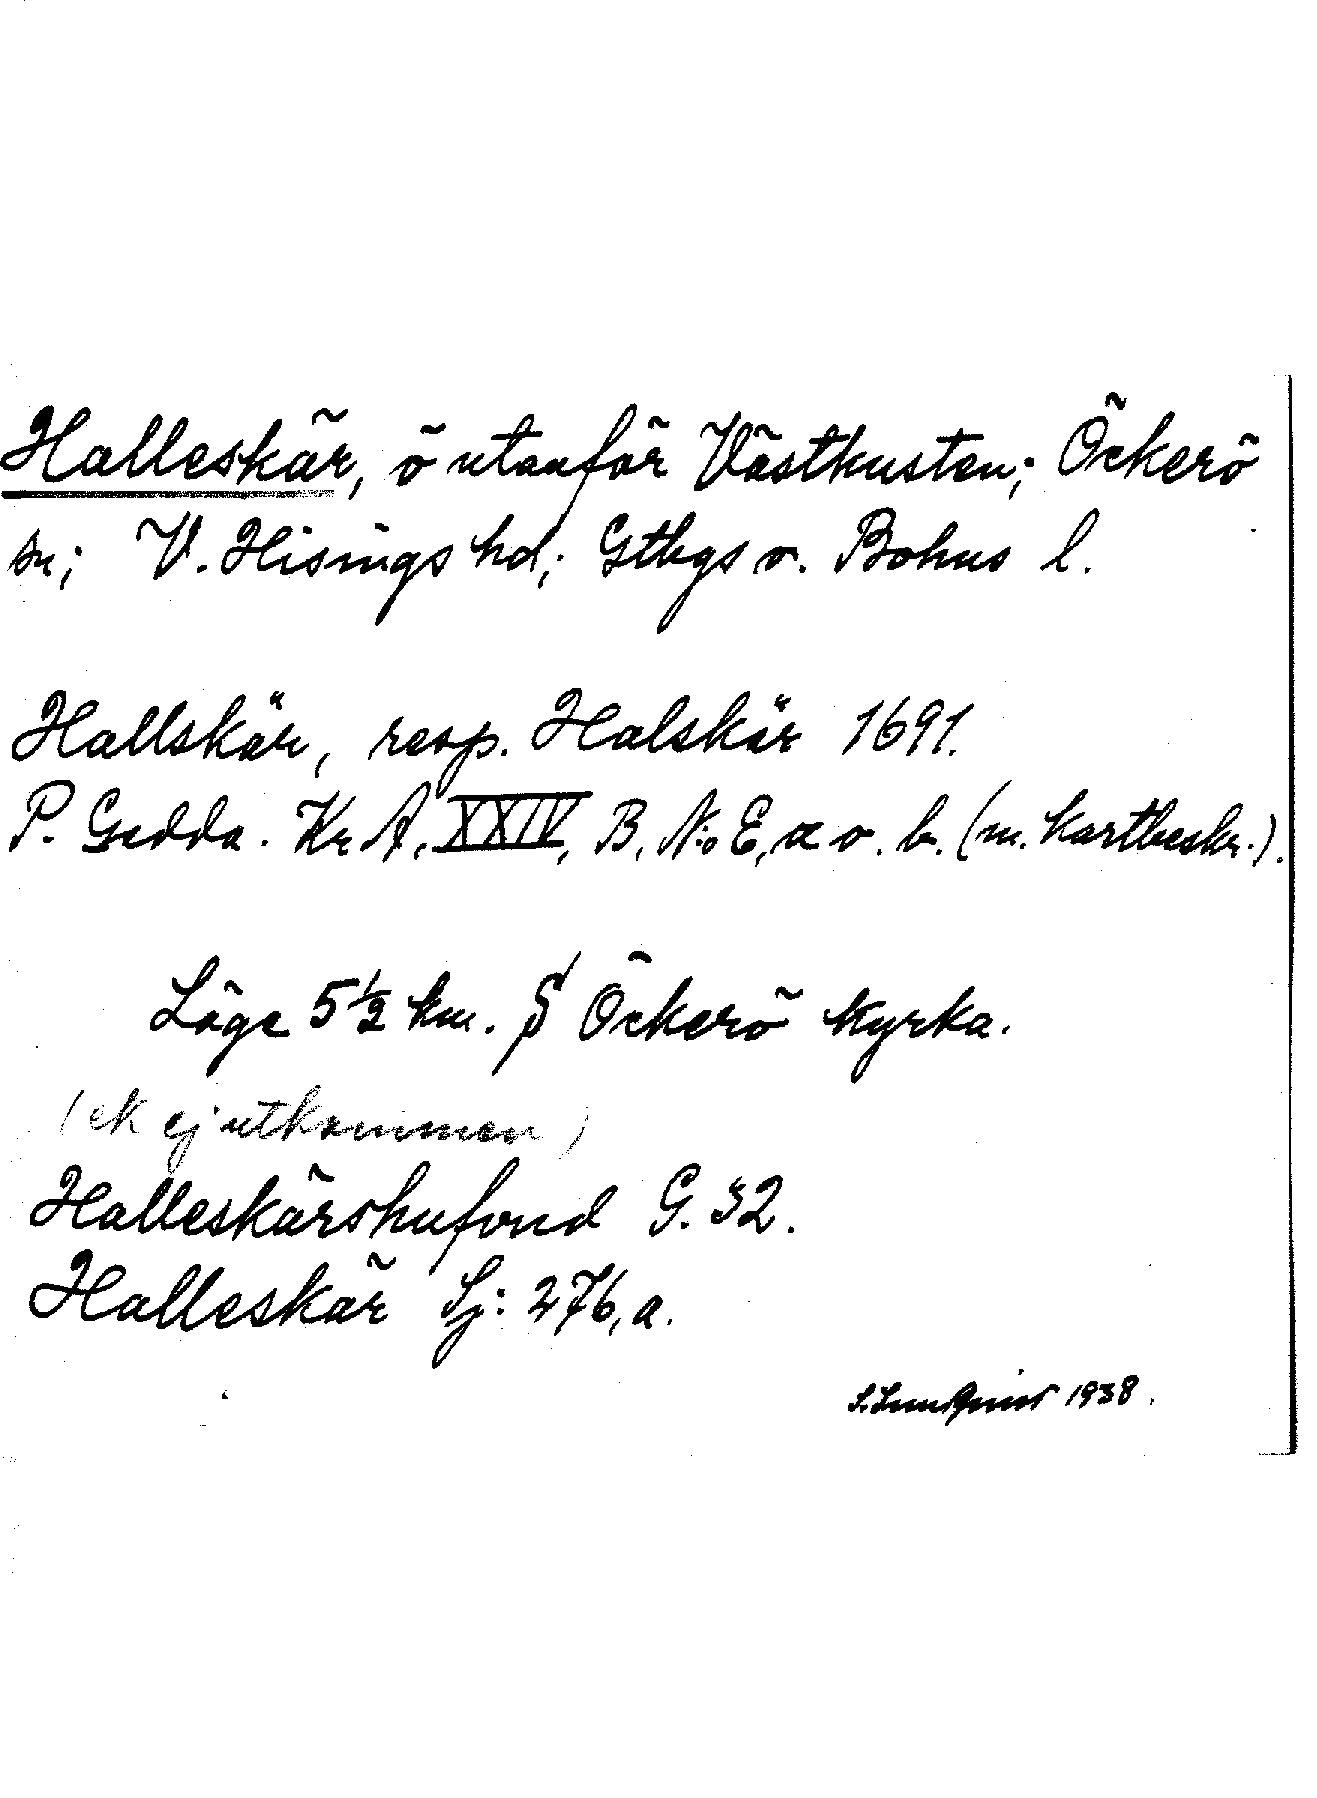 Halleskär, ö utanför Västkusten; Öckerö
sn; V. Hisings hd; Gtbgs o. Bohus l.
Hallskär, resp. Halskär 1691.
P. Gedda. Kr A, XXIV, B, N:o E, a o. b. (m. kartbeskr.).
Läge 5 1/2 km. S Öckerö kyrka.
(ek ej utkommen)
Halleskärshufvud G. 32.
Halleskär Sj: 276, a.
S. Lundqvist 1938.